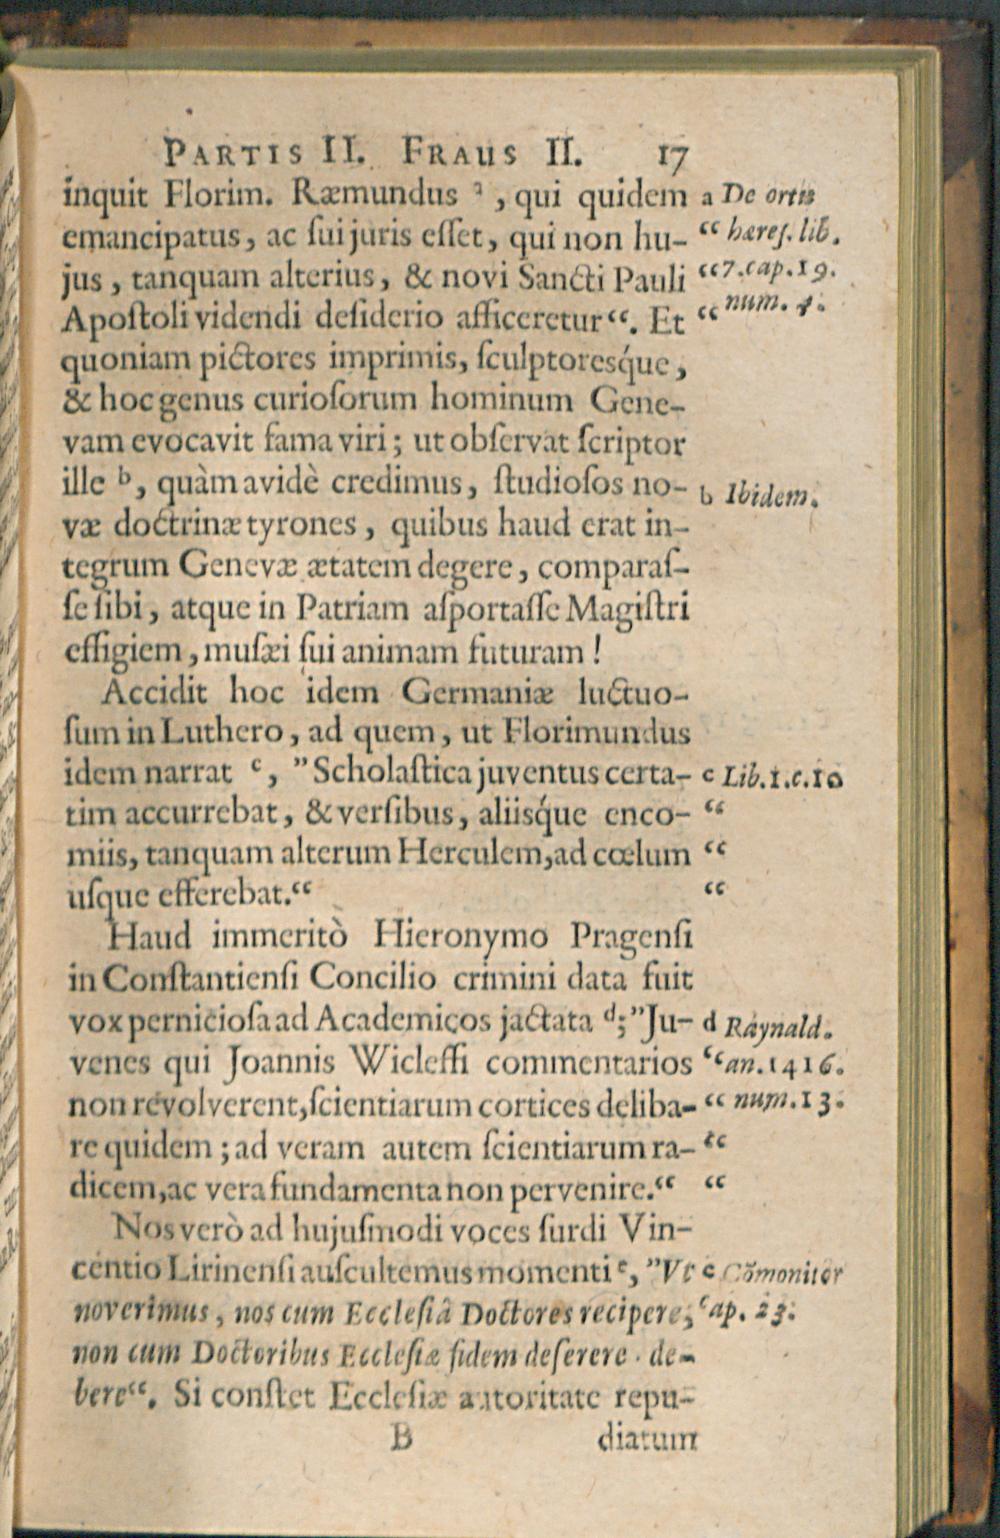 PARTIS II. FRAUS II. 17
inquit Florim. Ræmundus ᵃ, qui quidem a De ortu
emancipatus, ac ſui juris eſſet, qui non hu- “ hæreſ. lib.
jus, tanquam alterius, & novi Sancti Pauli “ 7. cap. 19.
Apoſtoli videndi deſiderio afficeretur“. Et “ num. 4.
quoniam pictores imprimis, ſculptoresq́ue,
& hoc genus curioſorum hominum Gene-
vam evocavit fama viri; ut obſervat ſcriptor
ille ᵇ, quàm avidè credimus, ſtudioſos no- b Ibidem.
væ doctrinæ tyrones, quibus haud erat in-
tegrum Genevæ ætatem degere, comparaſ-
ſe ſibi, atque in Patriam aſportaſſe Magiſtri
effigiem, muſæi ſui animam futuram!
Accidit hoc idem Germaniæ luctuo-
ſum in Luthero, ad quem, ut Florimundus
idem narrat ᶜ, ”Scholaſtica juventus certa- c Lib. 1. c. 10
tim accurrebat, & verſibus, aliisq́ue enco- “
miis, tanquam alterum Herculem, ad cœlum “
uſque efferebat.“ “
Haud immeritò Hieronymo Pragenſi
in Conſtantienſi Concilio crimini data fuit
vox pernicioſa ad Academicos jactata ᵈ; ”Ju- d Raynald.
venes qui Joannis Wicleffi commentarios “ an. 1416.
non revolverent, ſcientiarum cortices deliba- “ num. 13.
re quidem; ad veram autem ſcientiarum ra- “
dicem, ac vera fundamenta non pervenire.“ “
Nos verò ad hujuſmodi voces ſurdi Vin-
centio Lirinenſi auſcultemus momenti ᵉ, ”Vt e Cõmonitor
noverimus, nos cum Eccleſiâ Doctores recipere, cap. 23.
non cum Doctoribus Eccleſiæ fidem deſerere de-
bere“. Si conſtet Eccleſiæ autoritate repu-
B diatum